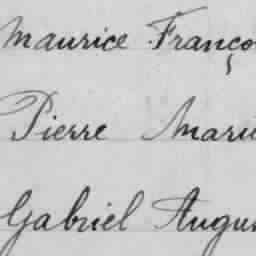 Maurice Franço
Pierre Mari
Gabriel Augus